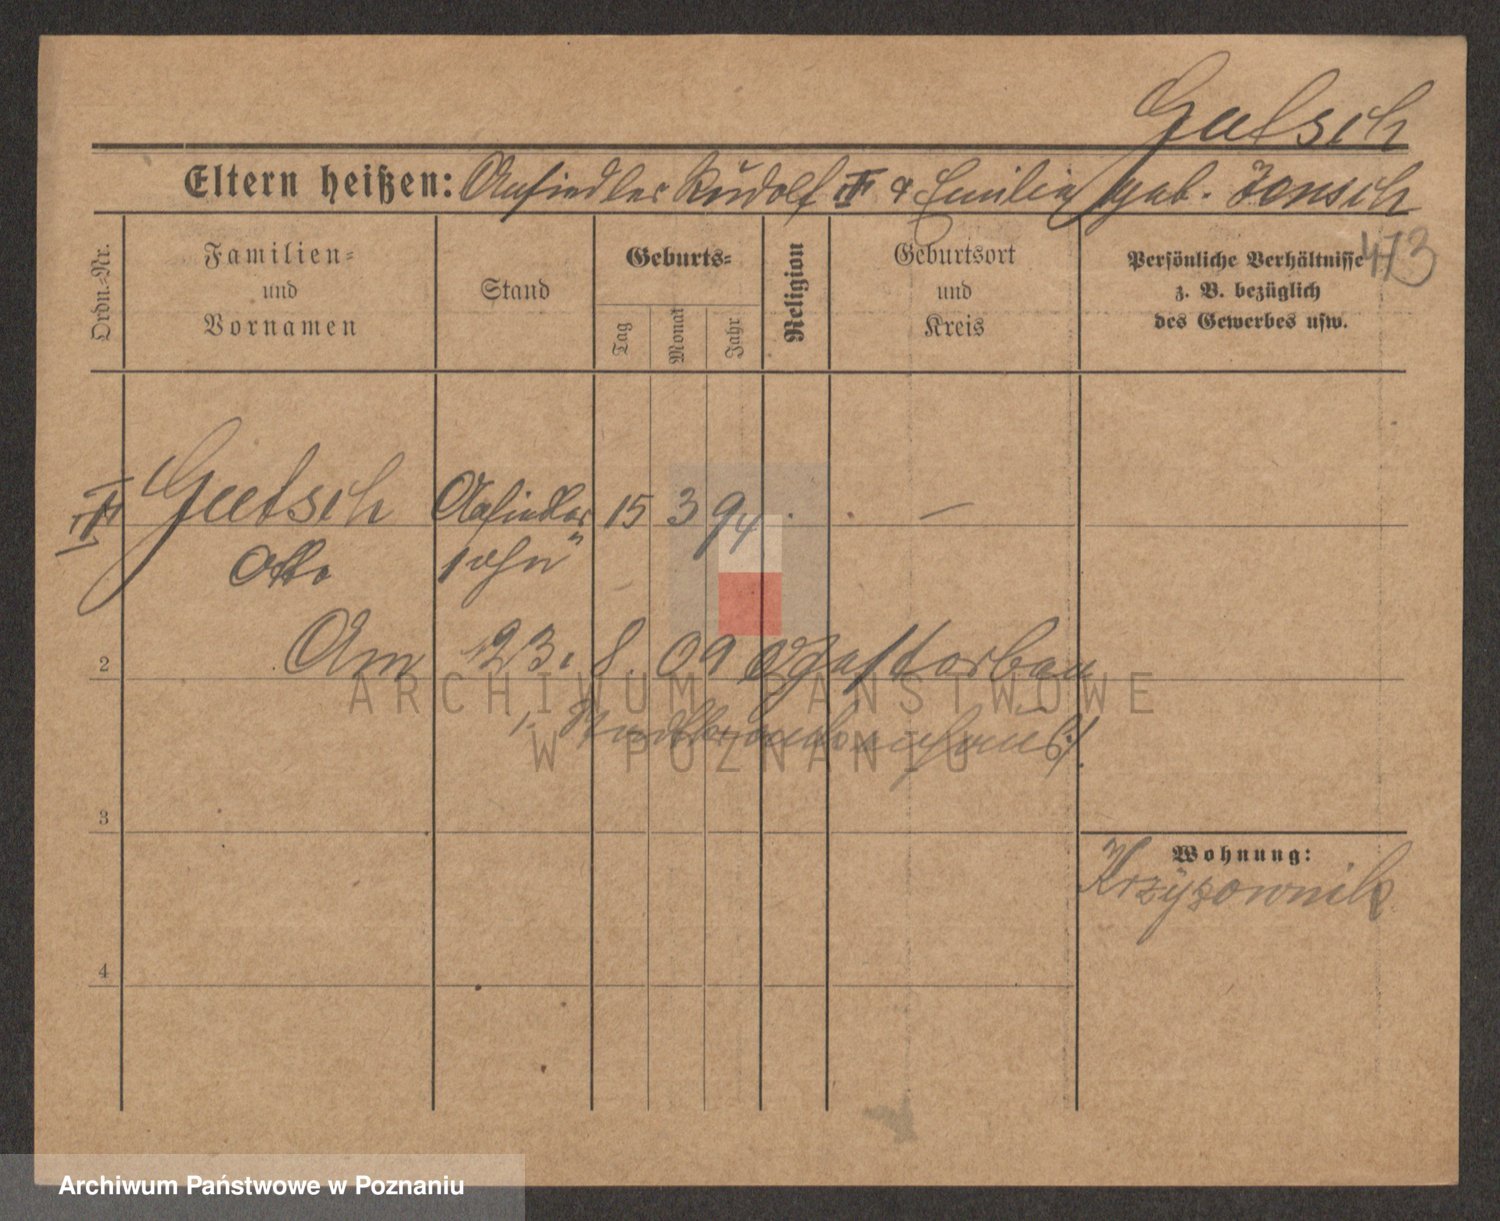 Gutsch
Eltern heißen: Ansiedler Rudolf & Emilie geb. Jensch
473
Ordn.-Nr.
Familien- und Vornamen
Stand
Geburts-
Tag
Monat
Jahr
Religion
Geburtsort und Kreis
Persönliche Verhältnisse z. B. bezüglich des Gewerbes usw.
Gutsch Ansiedler 15 3 94 —
Otto sohn
2
Am 23. 8. 09 gestorben
i. Stadtkrankenhaus
3
4
Wohnung:
Krzyzownik
ARCHIWUM PAŃSTWOWE
W POZNANIU
Archiwum Państwowe w Poznaniu